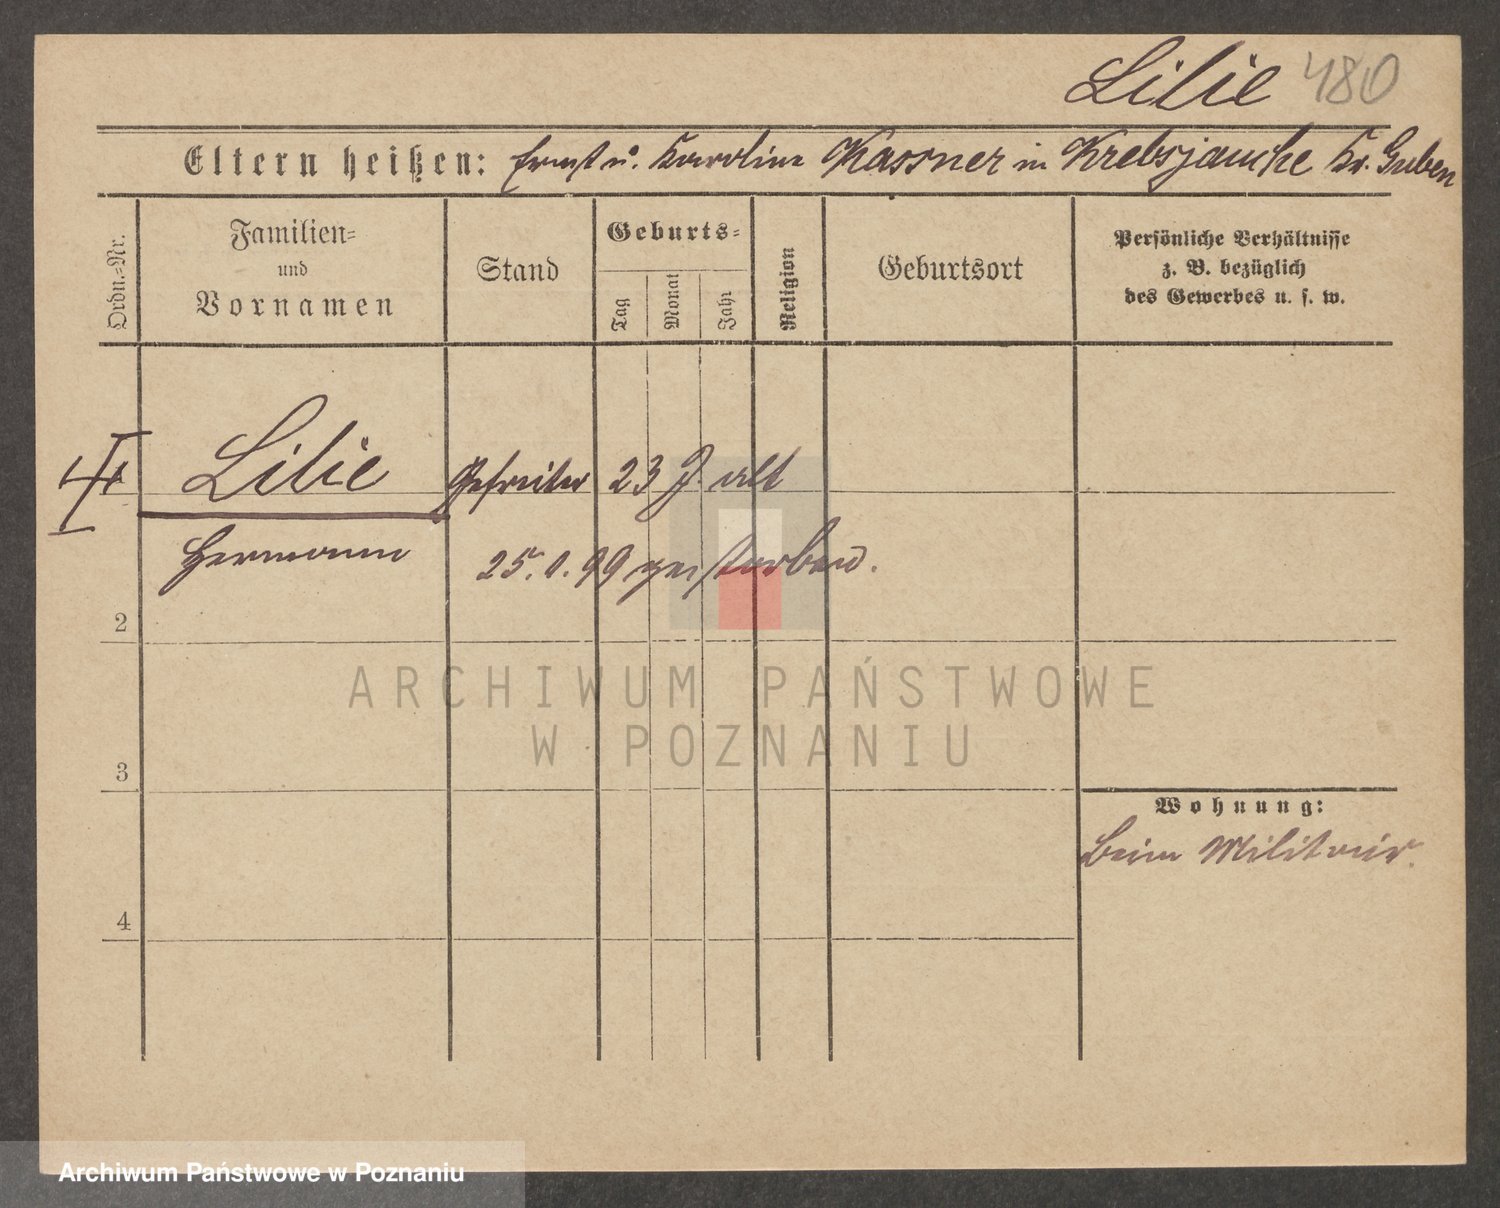 Lilie 480
Eltern heißen: Ernst u. Karoline Kassner in Krebsjauche Kr. Guben
Ordn.-Nr.
Familien-
und
Vornamen
Stand
Geburts-
Tag
Monat
Jahr
Religion
Geburtsort
Persönliche Verhältnisse
z. B. bezüglich
des Gewerbes u. s. w.
Lilie Gefreiter 23 J. alt
Hermann 25. 1. 99 gestorben.
2
ARCHIWUM PAŃSTWOWE
W POZNANIU
3
Wohnung:
Beim Militair.
4
Archiwum Państwowe w Poznaniu